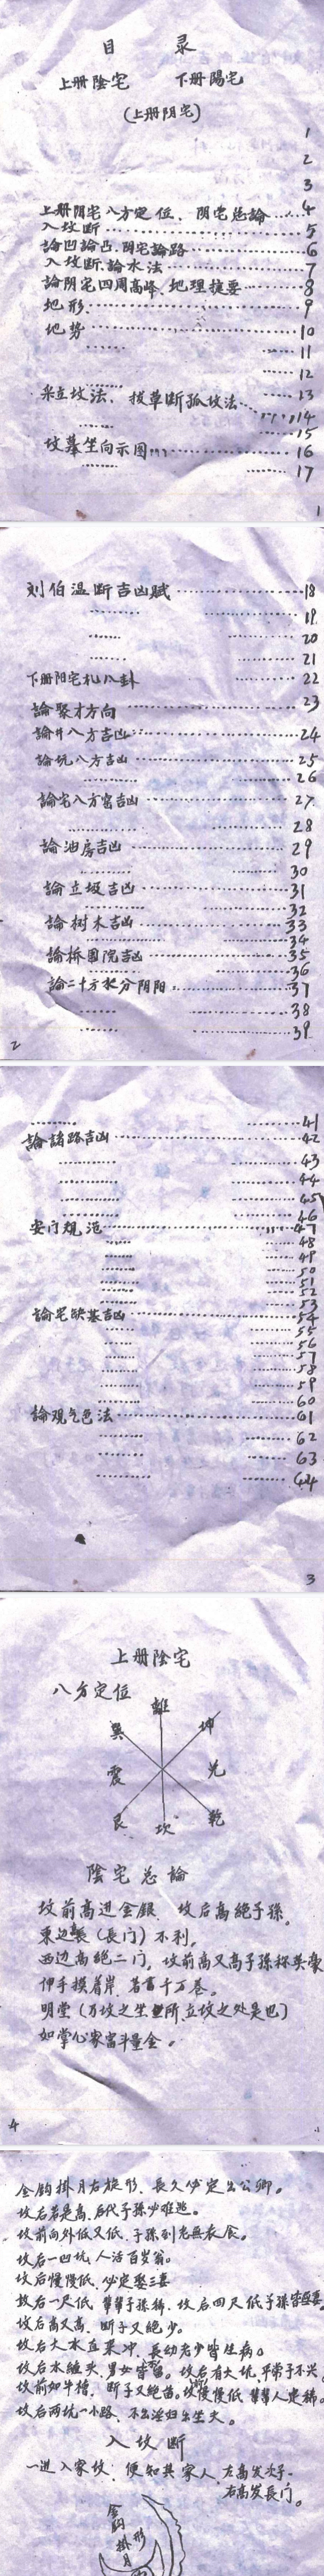 目 录
上册陰宅 下册陽宅
(上册阴宅)
1
2
3
上册阴宅八方定位、阴宅总論……4
入坟断……5
論凹論凸、阴宅論路……6
入坟断、論水法……7
論阴宅四周高峰、地理摘要……8
地形……9
地势……10
……11
……12
采立坟法、拔草断孤坟法……13
……14
……15
坟墓坐向示图……16
……17
1
刘伯温断吉凶赋……18
……19
……20
……21
下册阳宅札八卦……22
論聚才方向……23
論井八方吉凶……24
論坑八方吉凶……25
……26
論宅八方窑吉凶……27
……28
論油房吉凶……29
……30
論立圾吉凶……31
……32
論树木吉凶……33
……34
論桥田院吉凶……35
……36
論二十方把分阴阳……37
……38
……39
2
……41
論諸路吉凶……42
……43
……44
……45
……46
安门规范……47
……48
……49
……50
……51
……52
……53
論宅缺基吉凶……54
……55
……56
……57
……58
……59
……60
論观气色法……61
……62
……63
……64
3
上册陰宅
八方定位
離
巽 坤
震 兑
艮 坎 乾
陰宅总論
坟前高進金銀、坟后高絕子孫。
東边(長门)不利。
西边高絕二门，坟前高又高子孫称英豪
伸手摸着岸，若富千万卷。
明堂(乃坟之坐所、立坟之处是也)
如掌心家富斗量金。
4
金鈎掛月右旋形、長久必定出公卿。
坟后若是高、后代子孫必难逃。
坟前向外低又低、子孫到老無衣食。
坟后一凹坑、人活百岁翁。
坟后慢慢低、必定娶三妻
坟后一尺低 輩輩子孫稀、坟后四尺低子孫皆娶妻。
坟后高又高、断子又絕少。
坟后大水直来冲、長幼老少皆生病。
坟后水缠头、男女皆。坟后有大坑、平常子不兴。
坟前如牛槽，断子又絕苗。坟慢慢低 輩輩人更稀。
坟后两坑一小路、不出淫妇出生夫。
入坟断
一進入家坟、便知其家人、左高发次子、
右高发長门。
金鈎掛月形